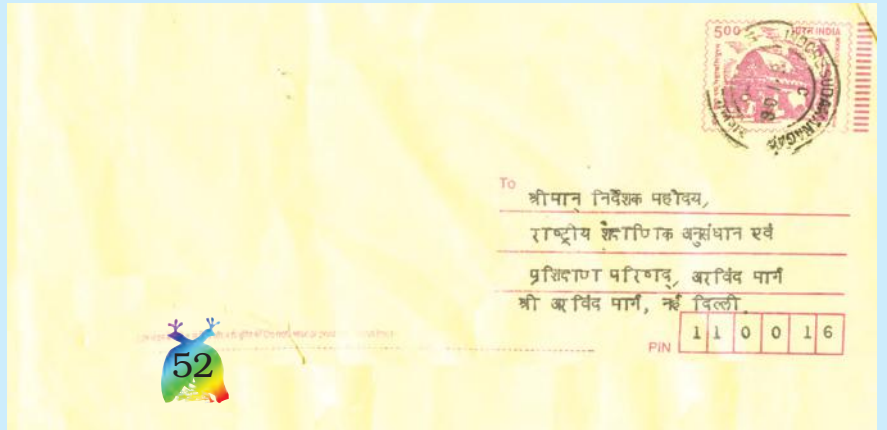 500
INDIA
To
श्रीमान् निर्देशक महोदय,
राष्ट्रीय शैक्षणिक अनुसंधान एवं
प्रशिक्षण परिषद्, अरविंद मार्ग
श्री अरविंद मार्ग, नई दिल्ली
PIN 110016
52